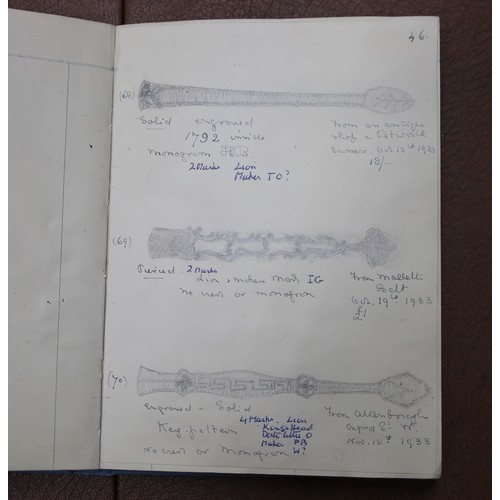 46.
(68)
Solid engraved
1792 inside
monogram
2 Marks Lion
Maker TO?
From an antique
shop
Oct. 12th 1933
18/-
(69)
Pierced 2 Marks
Lion & makers Mark IG
no crest or monogram
From Mallett
Oct. 19th 1933
£1
(70)
engraved - Solid
4 Marks. Lion
Key pattern Kings Head
Date letter O
Maker PB
no crest or Monogram W?
From Attenborough
Nov. 16th 1933